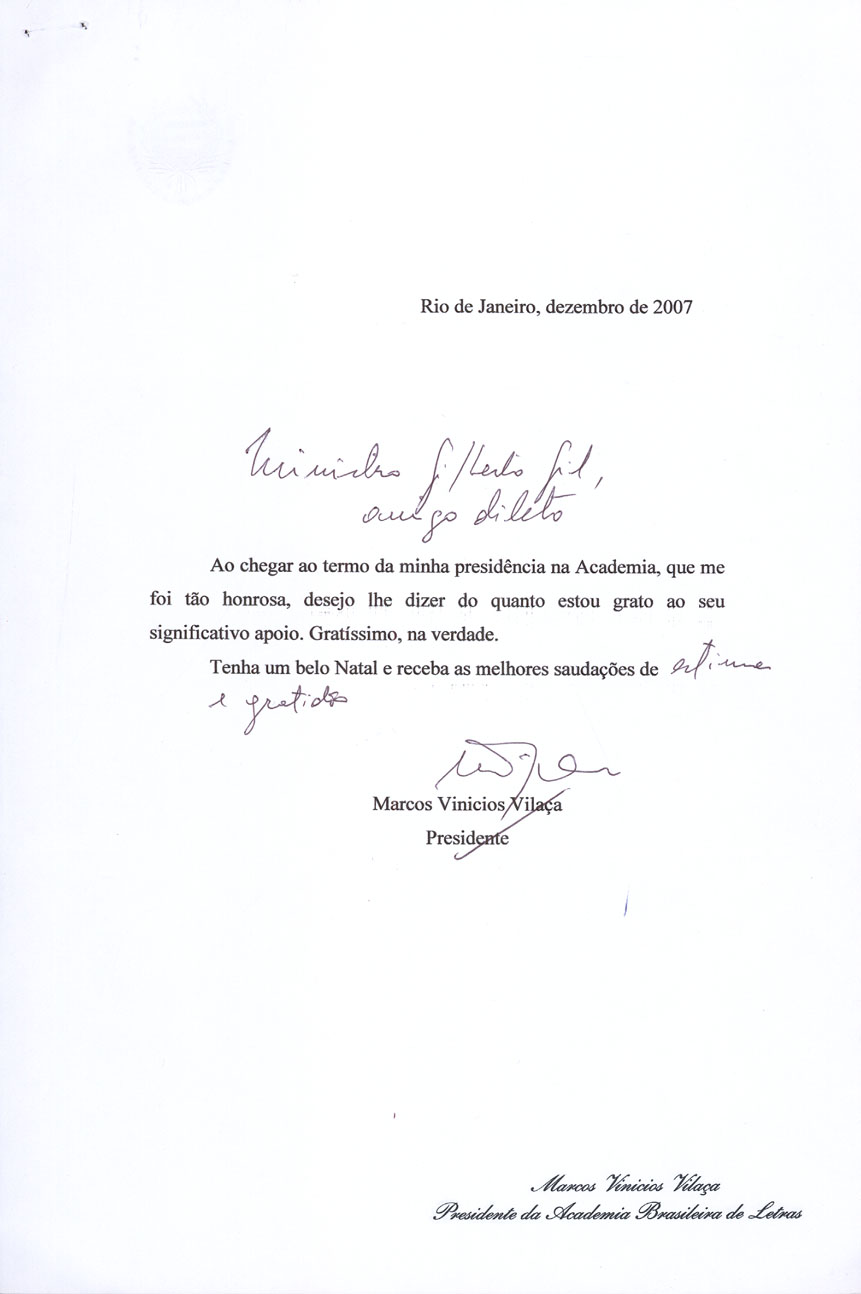 Rio de Janeiro, dezembro de 2007
Ministro Gilberto Gil,
amigo dileto
Ao chegar ao termo da minha presidência na Academia, que me
foi tão honrosa, desejo lhe dizer do quanto estou grato ao seu
significativo apoio. Gratíssimo, na verdade.
Tenha um belo Natal e receba as melhores saudações de estima
e gratidão
Marcos Vinicios Vilaça
Presidente
Marcos Vinicios Vilaça
Presidente da Academia Brasileira de Letras